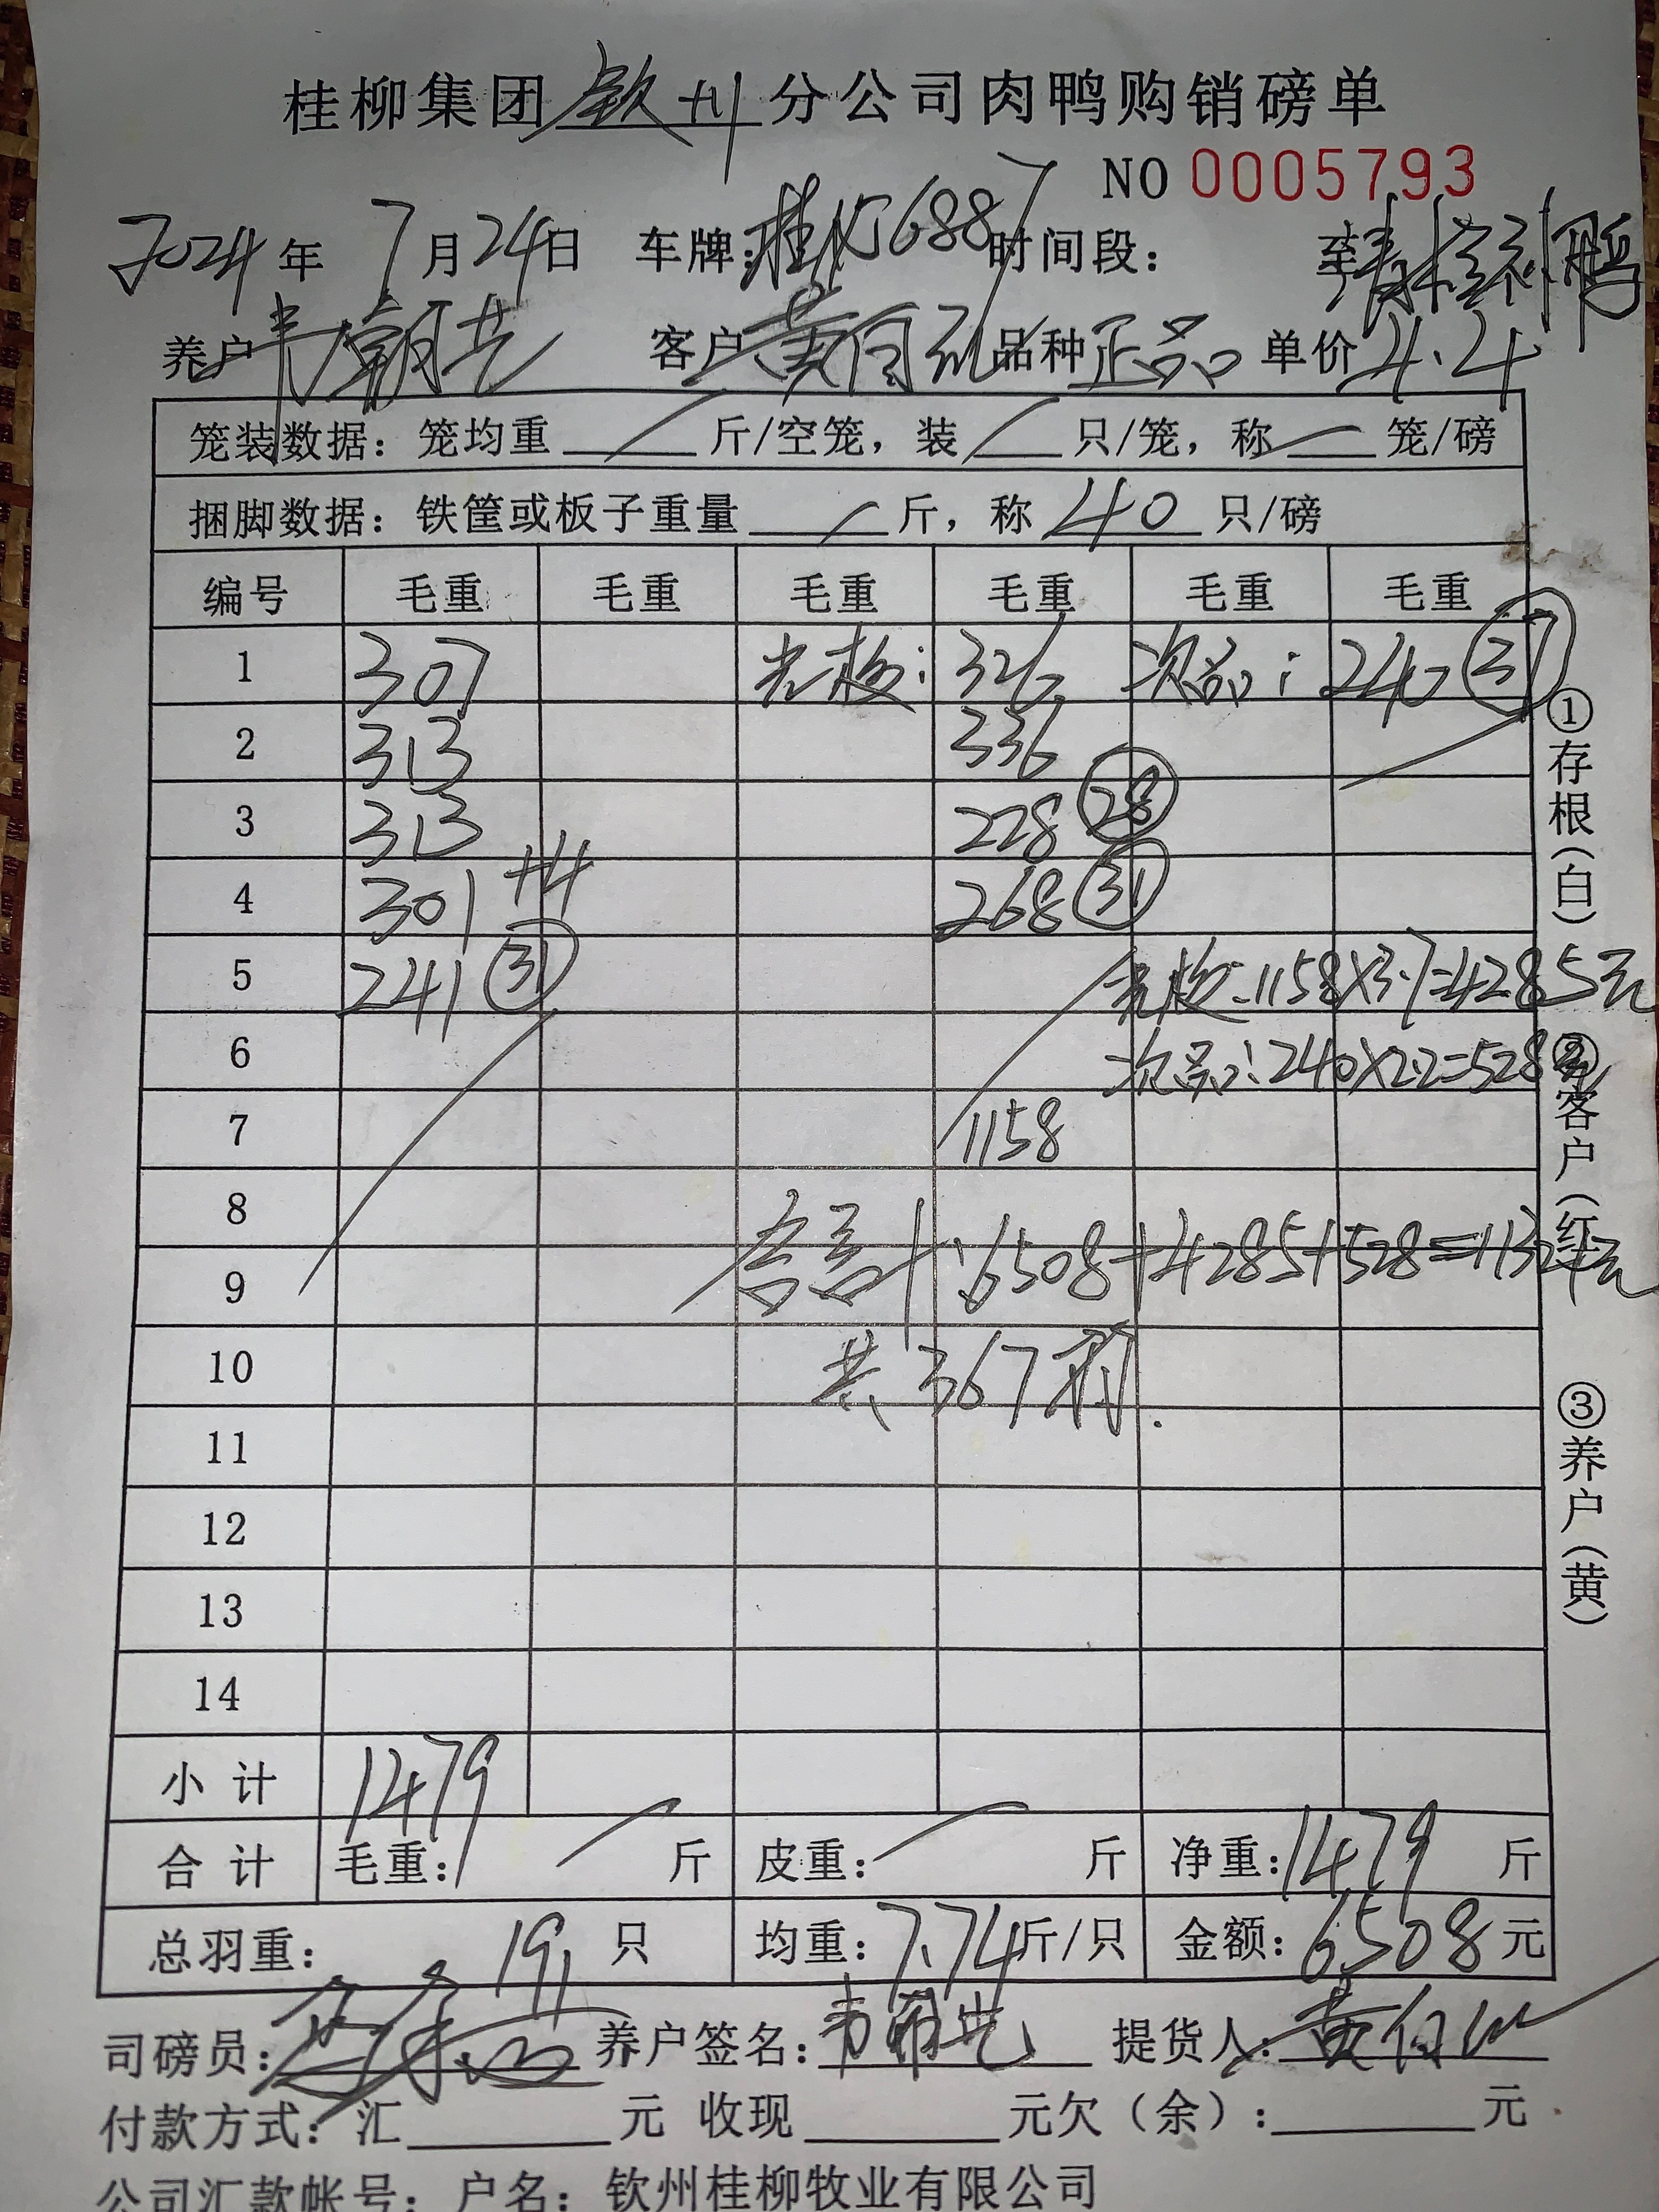 桂柳集团钦州分公司肉鸭购销磅单
NO 0005793
2024年7月24日 车牌: 桂 6887 时间段: 至
养户韦朝 客户 黄 品种 正品 单价 4.4
笼装数据: 笼均重 / 斤/空笼, 装 / 只/笼, 称 / 笼/磅
捆脚数据: 铁筐或板子重量 / 斤, 称 40 只/磅
编号 毛重 毛重 毛重 毛重 毛重 毛重
1 307 光板: 326 次品: 240 ㊲
2 313 336
3 313 228 ㉘
4 301 +4 268 ㉛
5 241 ㉛ 光板: 1158×3.7=4285元
6 次品: 240×2.2=528元
7 1158
8
9 合计: 6508+4285+528=11321元
10 共367羽.
11
12
13
14
小计 1479
合计 毛重: / 斤 皮重: / 斤 净重: 1479 斤
总羽重: 191 只 均重: 7.74 斤/只 金额: 6508 元
司磅员: 养户签名: 韦朝 提货人: 黄
付款方式: 汇 元 收现 元欠(余): 元
公司汇款帐号: 户名: 钦州桂柳牧业有限公司
①存根(白) ②客户(红) ③养户(黄)